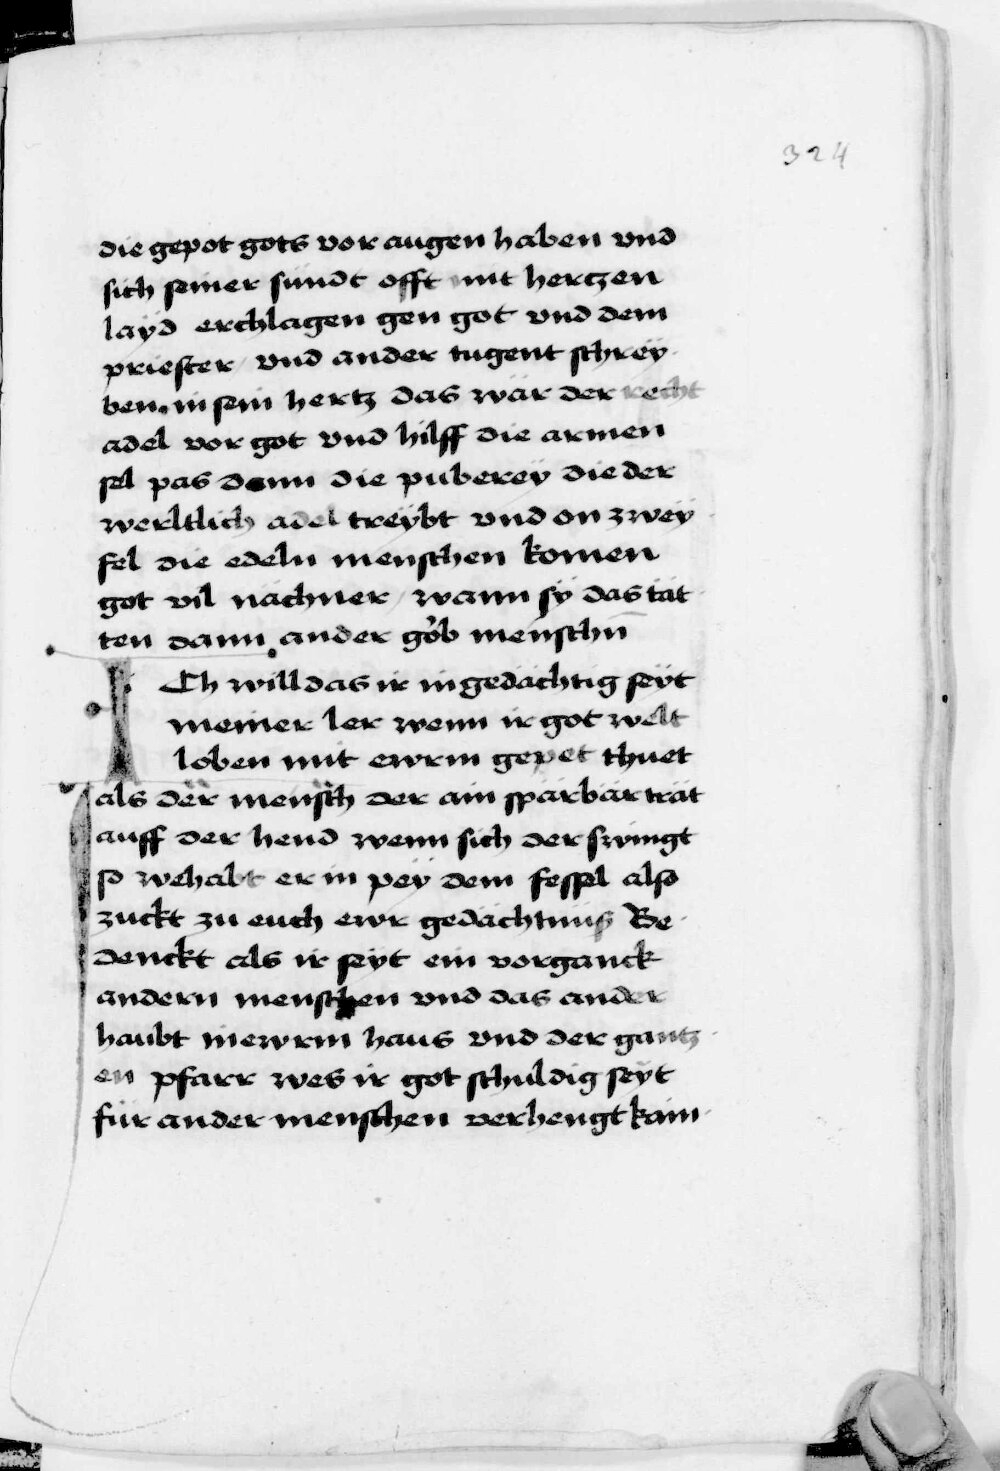 324
die gepot gots vor augen haben vnd
sich seiner sündt offt mit hertzen
layd erchlagen gen got vnd dem
priester / vnd ander tugent schrey-
ben. in sein hertz das wär der recht
adel vor got vnd hilff die armen
sel pas dann die puberey die der
werltlich adel treybt vnd on zwey-
fel die edeln menschen komen
got vil nächner / wann sy das tät-
ten dann ander gob menschn̄
ICh will das ir ingedächtig seyt
meiner ler wenn ir got welt
loben mit ewrm gepet thuet
als der mensch der ain spärbär trät
auff der hend wenn sich der swingt
so wehabt er in pey dem fessel also
zuckt zu euch ewr gedächtnüß Be-
denckt als ir seyt ein vorganck
andern menschen vnd das ander
haubt in ewrm haus vnd der gantz-
en pfarr wes ir got schuldig seyt
für ander menschen verhengt kain-